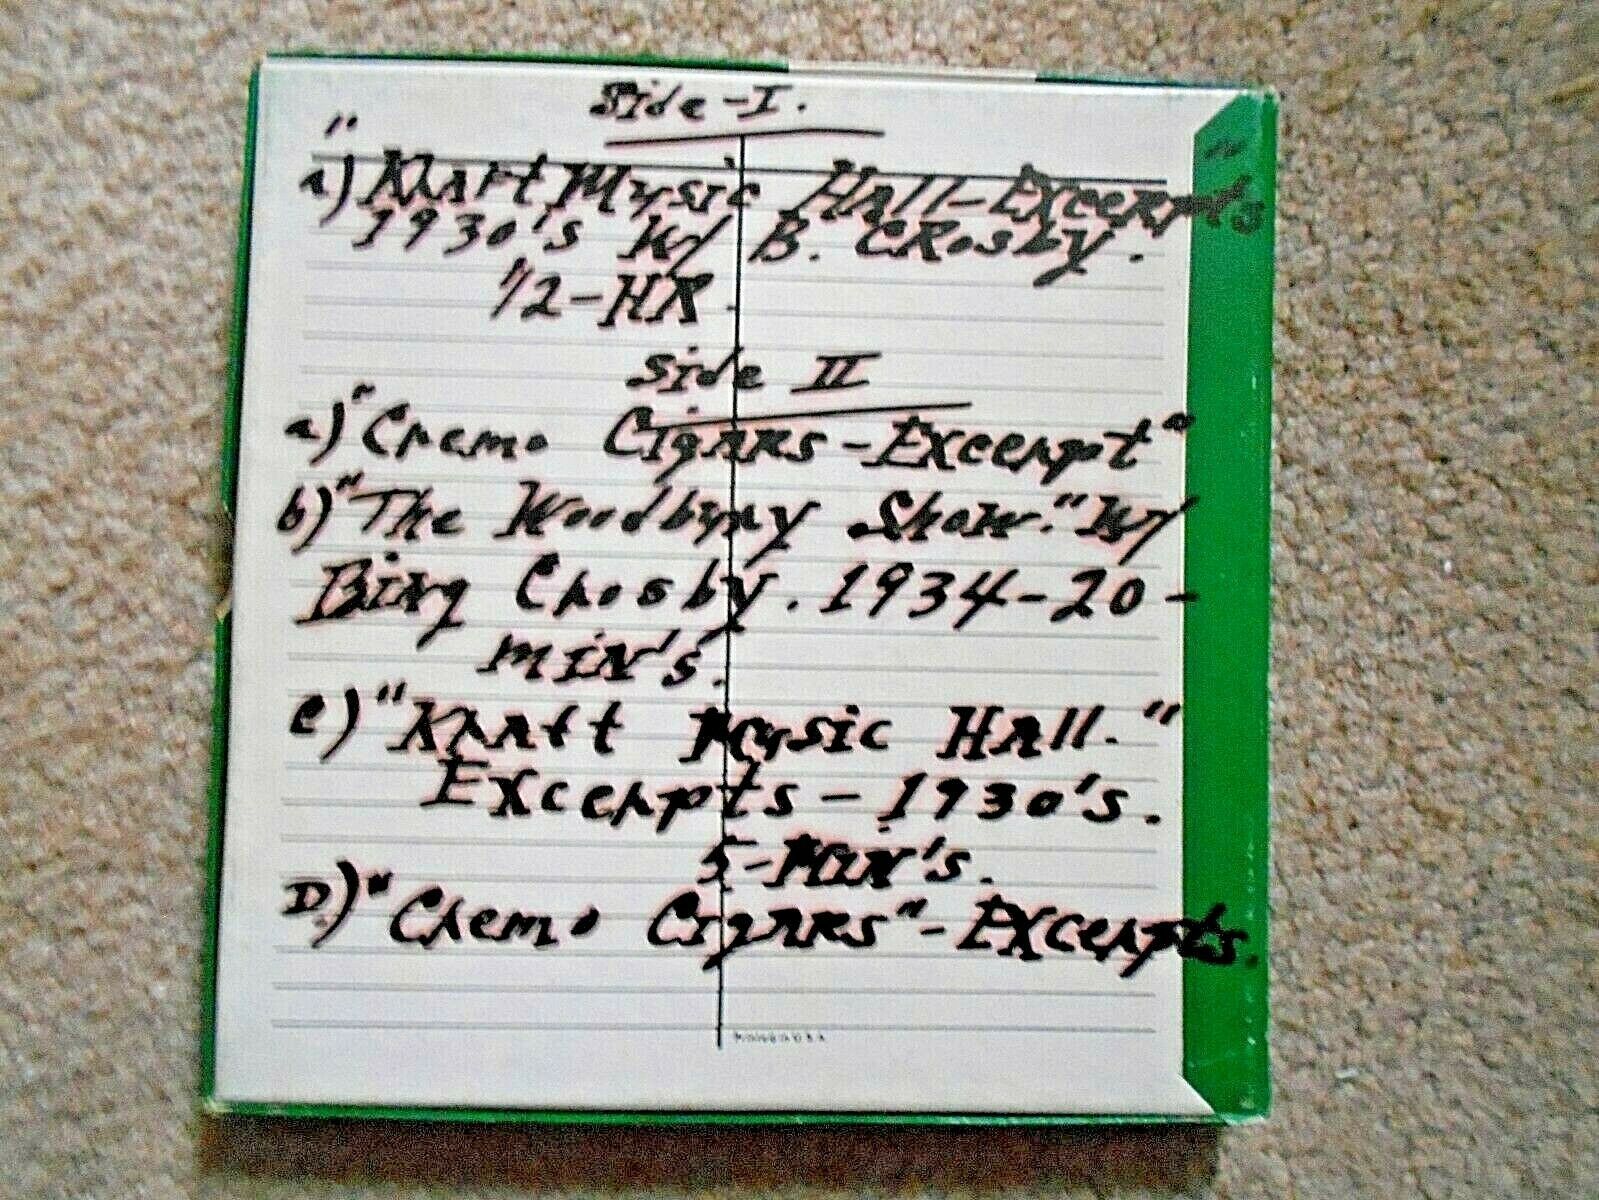 Side-I.
a) "Kraft Music Hall-Excerpts"
1930's W/ B. Crosby.
1/2-HR.
Side II
a) "Cremo Cigars-Excerpt"
b) "The Woodbury Show." W/
Bing Crosby. 1934-20-
MIN's.
c) "Kraft Music Hall."
Excerpts-1930's.
5-MIN's.
D) "Cremo Cigars"-Excerpts.